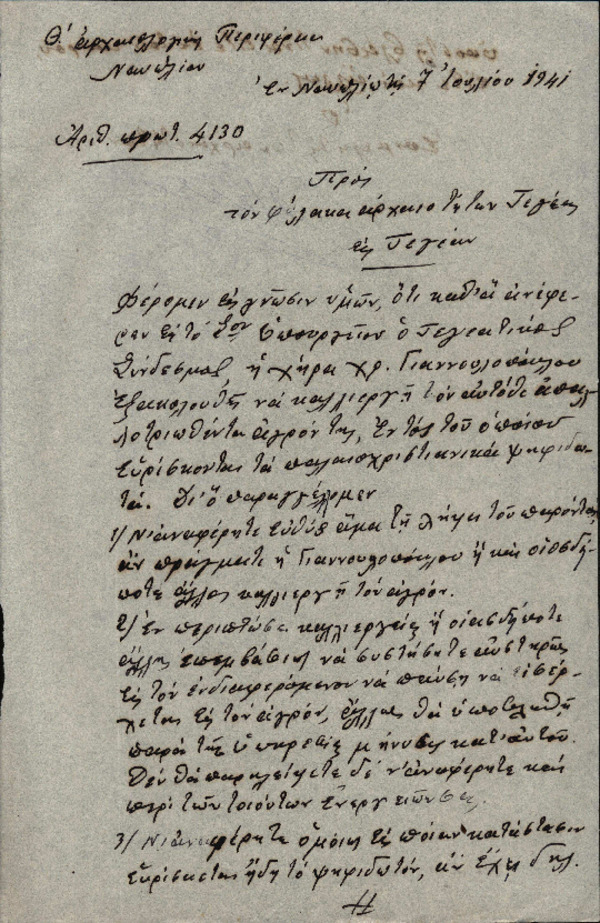 Θ' ἀρχαιολογικὴ Περιφέρεια
Ναυπλίου
Ἐν Ναυπλίῳ τῇ 7 Ἰουλίου 1941
Ἀριθ. πρωτ. 4130
Πρὸς
τὸν φύλακα ἀρχαιοτήτων Τεγέας
εἰς Τεγέαν
Φέρομεν εἰς γνῶσιν ὑμῶν, ὅτι καθ' ἃ ἀνέφε-
ρεν εἰς τὸ Σον Ὑπουργεῖον ὁ Τεγεατικὸς
Σύνδεσμος ἡ χήρα χρ. Γιαννουλοπούλου
ἐξακολουθεῖ νὰ καλλιεργῇ τὸν αὐτόθι ἀπαλ-
λοτριωθέντα ἀγρόν της, ἐντὸς τοῦ ὁποίου
εὑρίσκονται τὰ παλαιοχριστιανικὰ ψηφιδω-
τά. Δι' ὃ παραγγέλλομεν
1/ Ν' ἀναφέρητε εὐθὺς ἅμα τῇ λήψει τοῦ παρόντος,
ἂν πράγματι ἡ Γιαννουλοπούλου ἢ καὶ οἱοσδή-
ποτε ἄλλος καλλιεργῇ τὸν ἀγρόν.
2/ Ἐν περιπτώσει καλλιεργείας ἢ οἱασδήποτε
ἄλλης ἐπεμβάσεως νὰ συστήσητε αὐστηρῶς
εἰς τὸν ἐνδιαφερόμενον νὰ παύσῃ νὰ εἰσέρ-
χεται εἰς τὸν ἀγρόν, ἄλλως θὰ ὑποβληθῇ
παρὰ τῆς ὑπηρεσίας μήνυσις κατ' αὐτοῦ.
Δὲν θὰ παραλείψετε δὲ ν' ἀναφέρητε καὶ
περὶ τῶν τοιούτων ἐνεργειῶν σας.
3/ Ν' ἀναφέρητε ὁμοίως εἰς ποίαν κατάστασιν
εὑρίσκεται ἤδη τὸ ψηφιδωτόν, ἂν ἔχῃ δηλ.